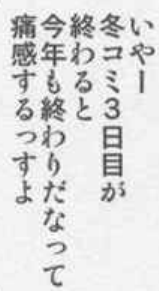 いやー
冬コミ3日目が
終わると
今年も終わりだなって
痛感するっすよ